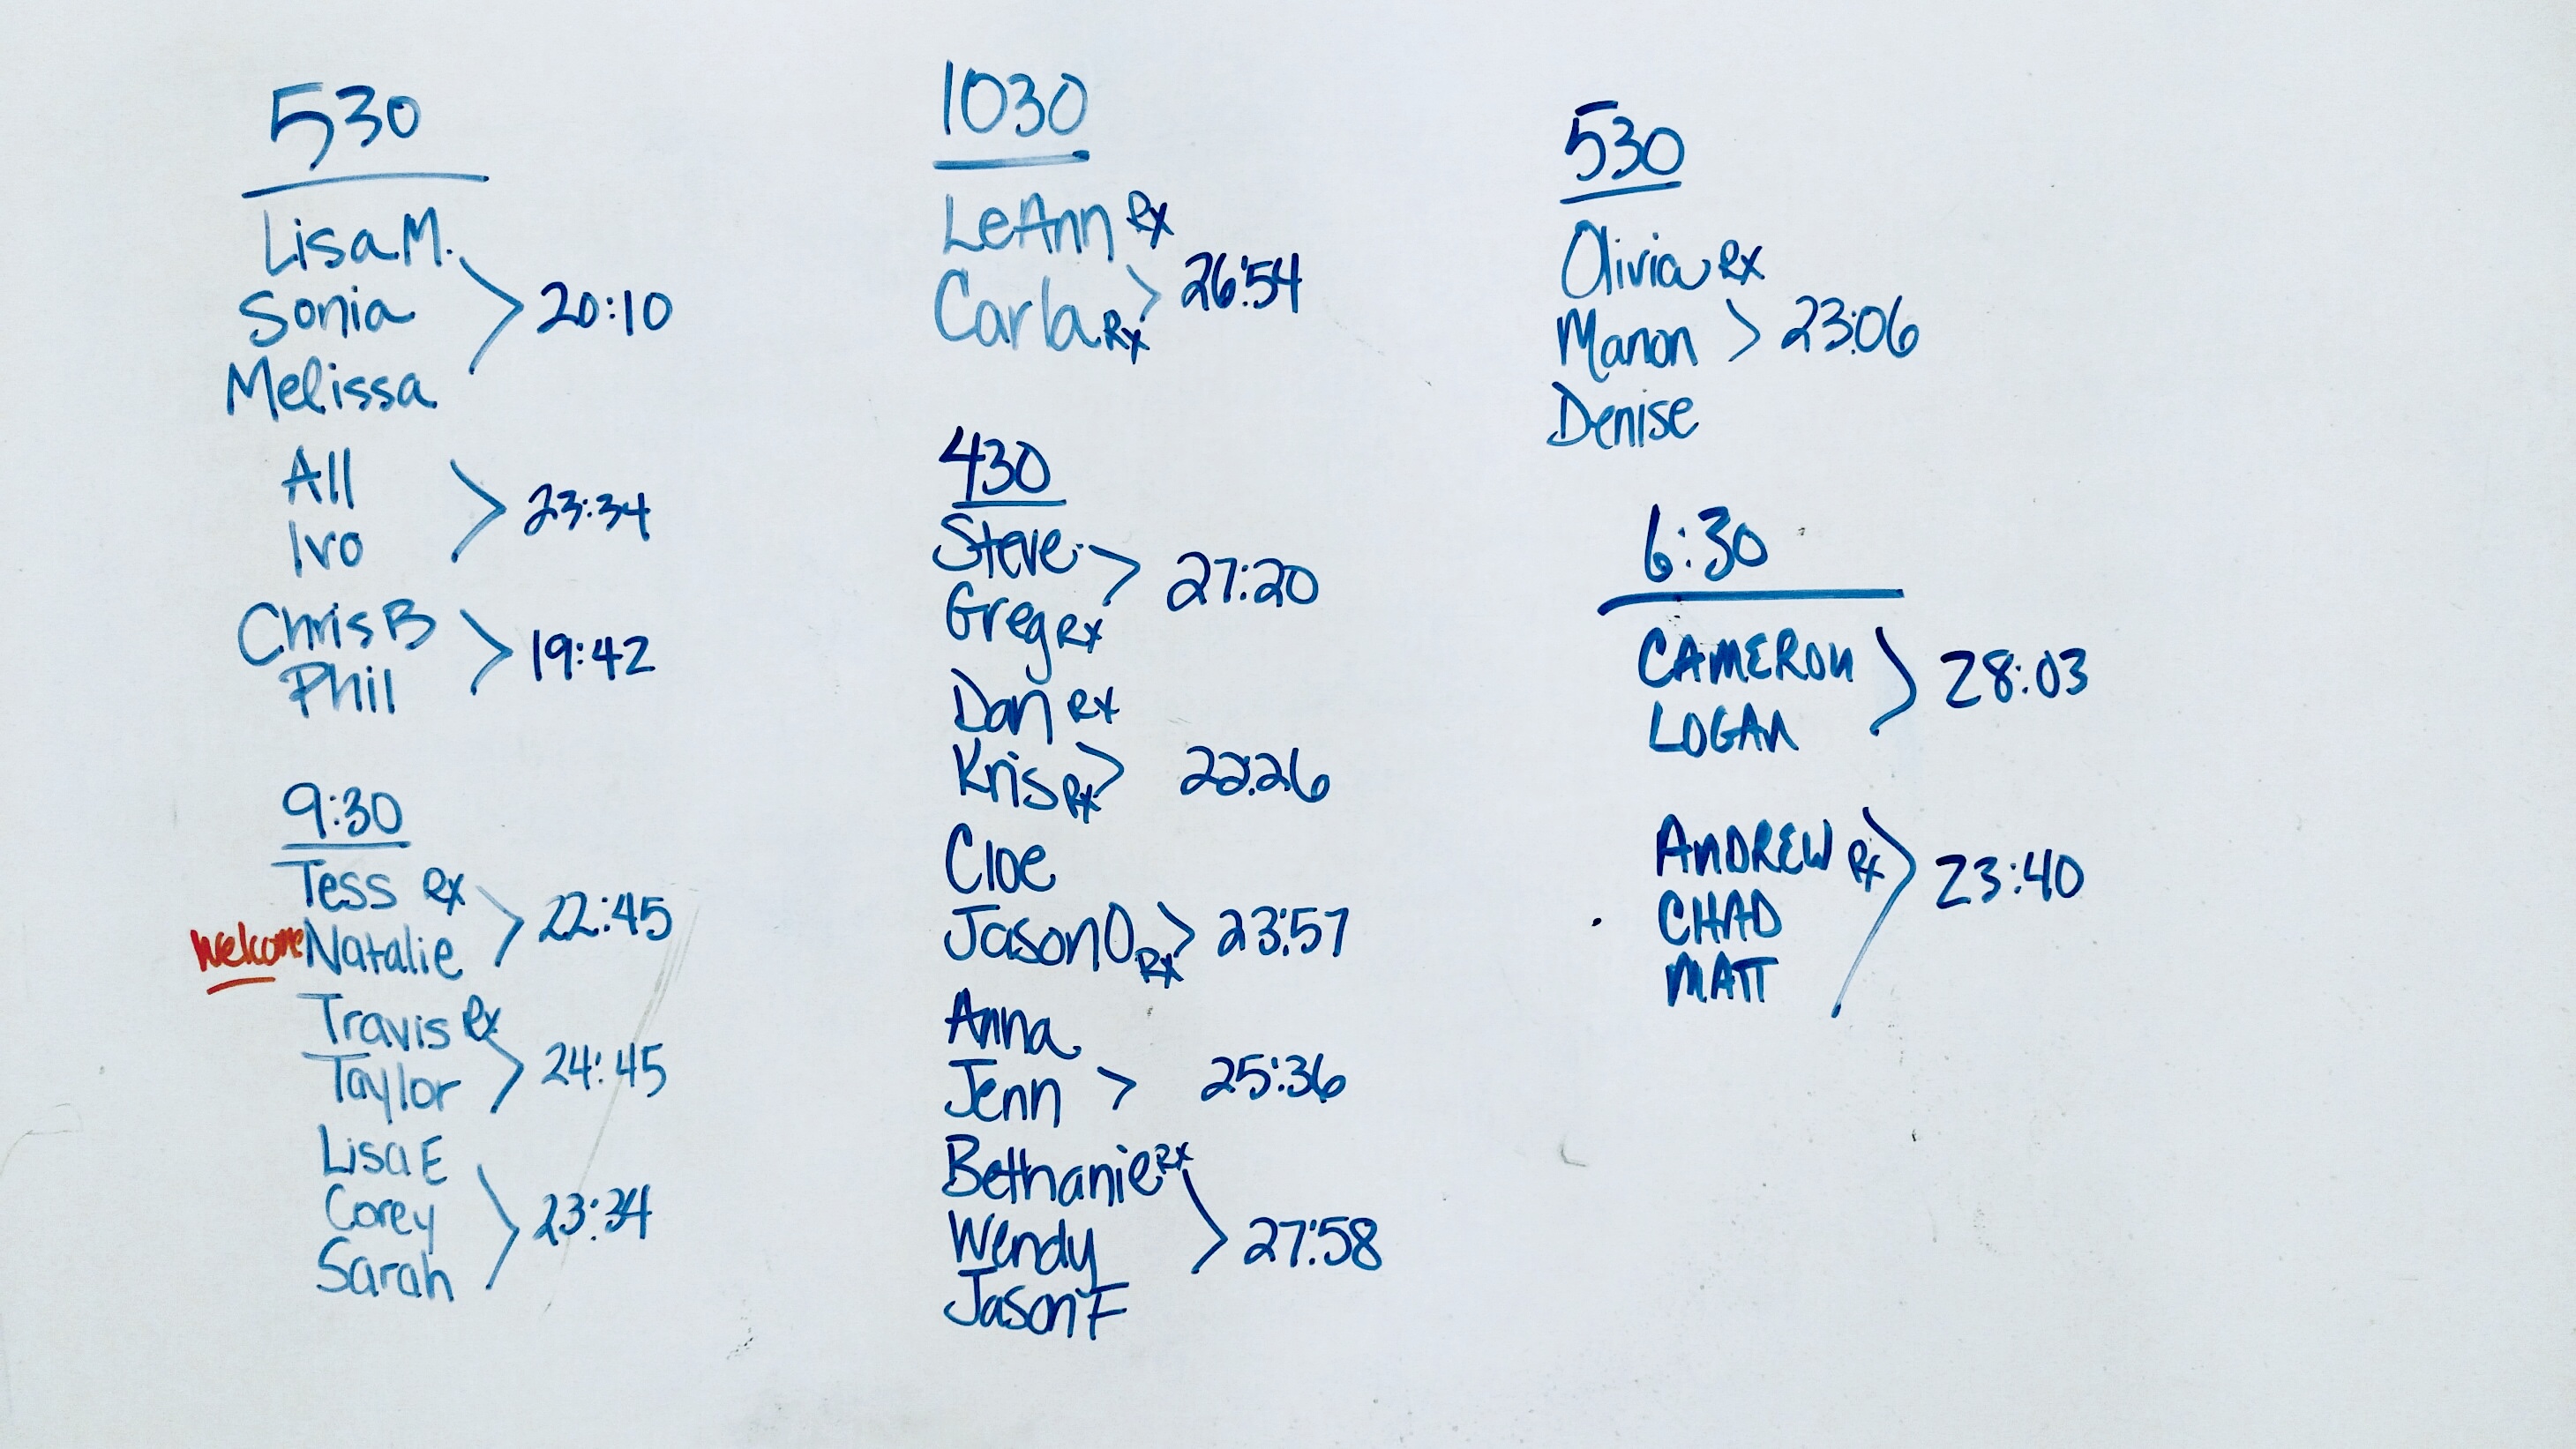 530
Lisa M.
Sonia > 20:10
Melissa
All
Ivo > 23:34
Chris B
Phil > 19:42
9:30
Tess Rx
Welcome Natalie > 22:45
Travis Rx
Taylor > 24:45
Lisa E
Corey > 23:34
Sarah
1030
LeAnn Rx
Carla Rx > 26:54
430
Steve
Greg Rx > 27:20
Dan Rx
Kris Rx > 22:26
Cloe
Jason O Rx > 23:57
Anna
Jenn > 25:36
Bethanie Rx
Wendy > 27:58
Jason F
530
Olivia Rx
Manon > 23:06
Denise
6:30
CAMERON
LOGAN > 28:03
ANDREW Rx
CHAD > 23:40
MATT